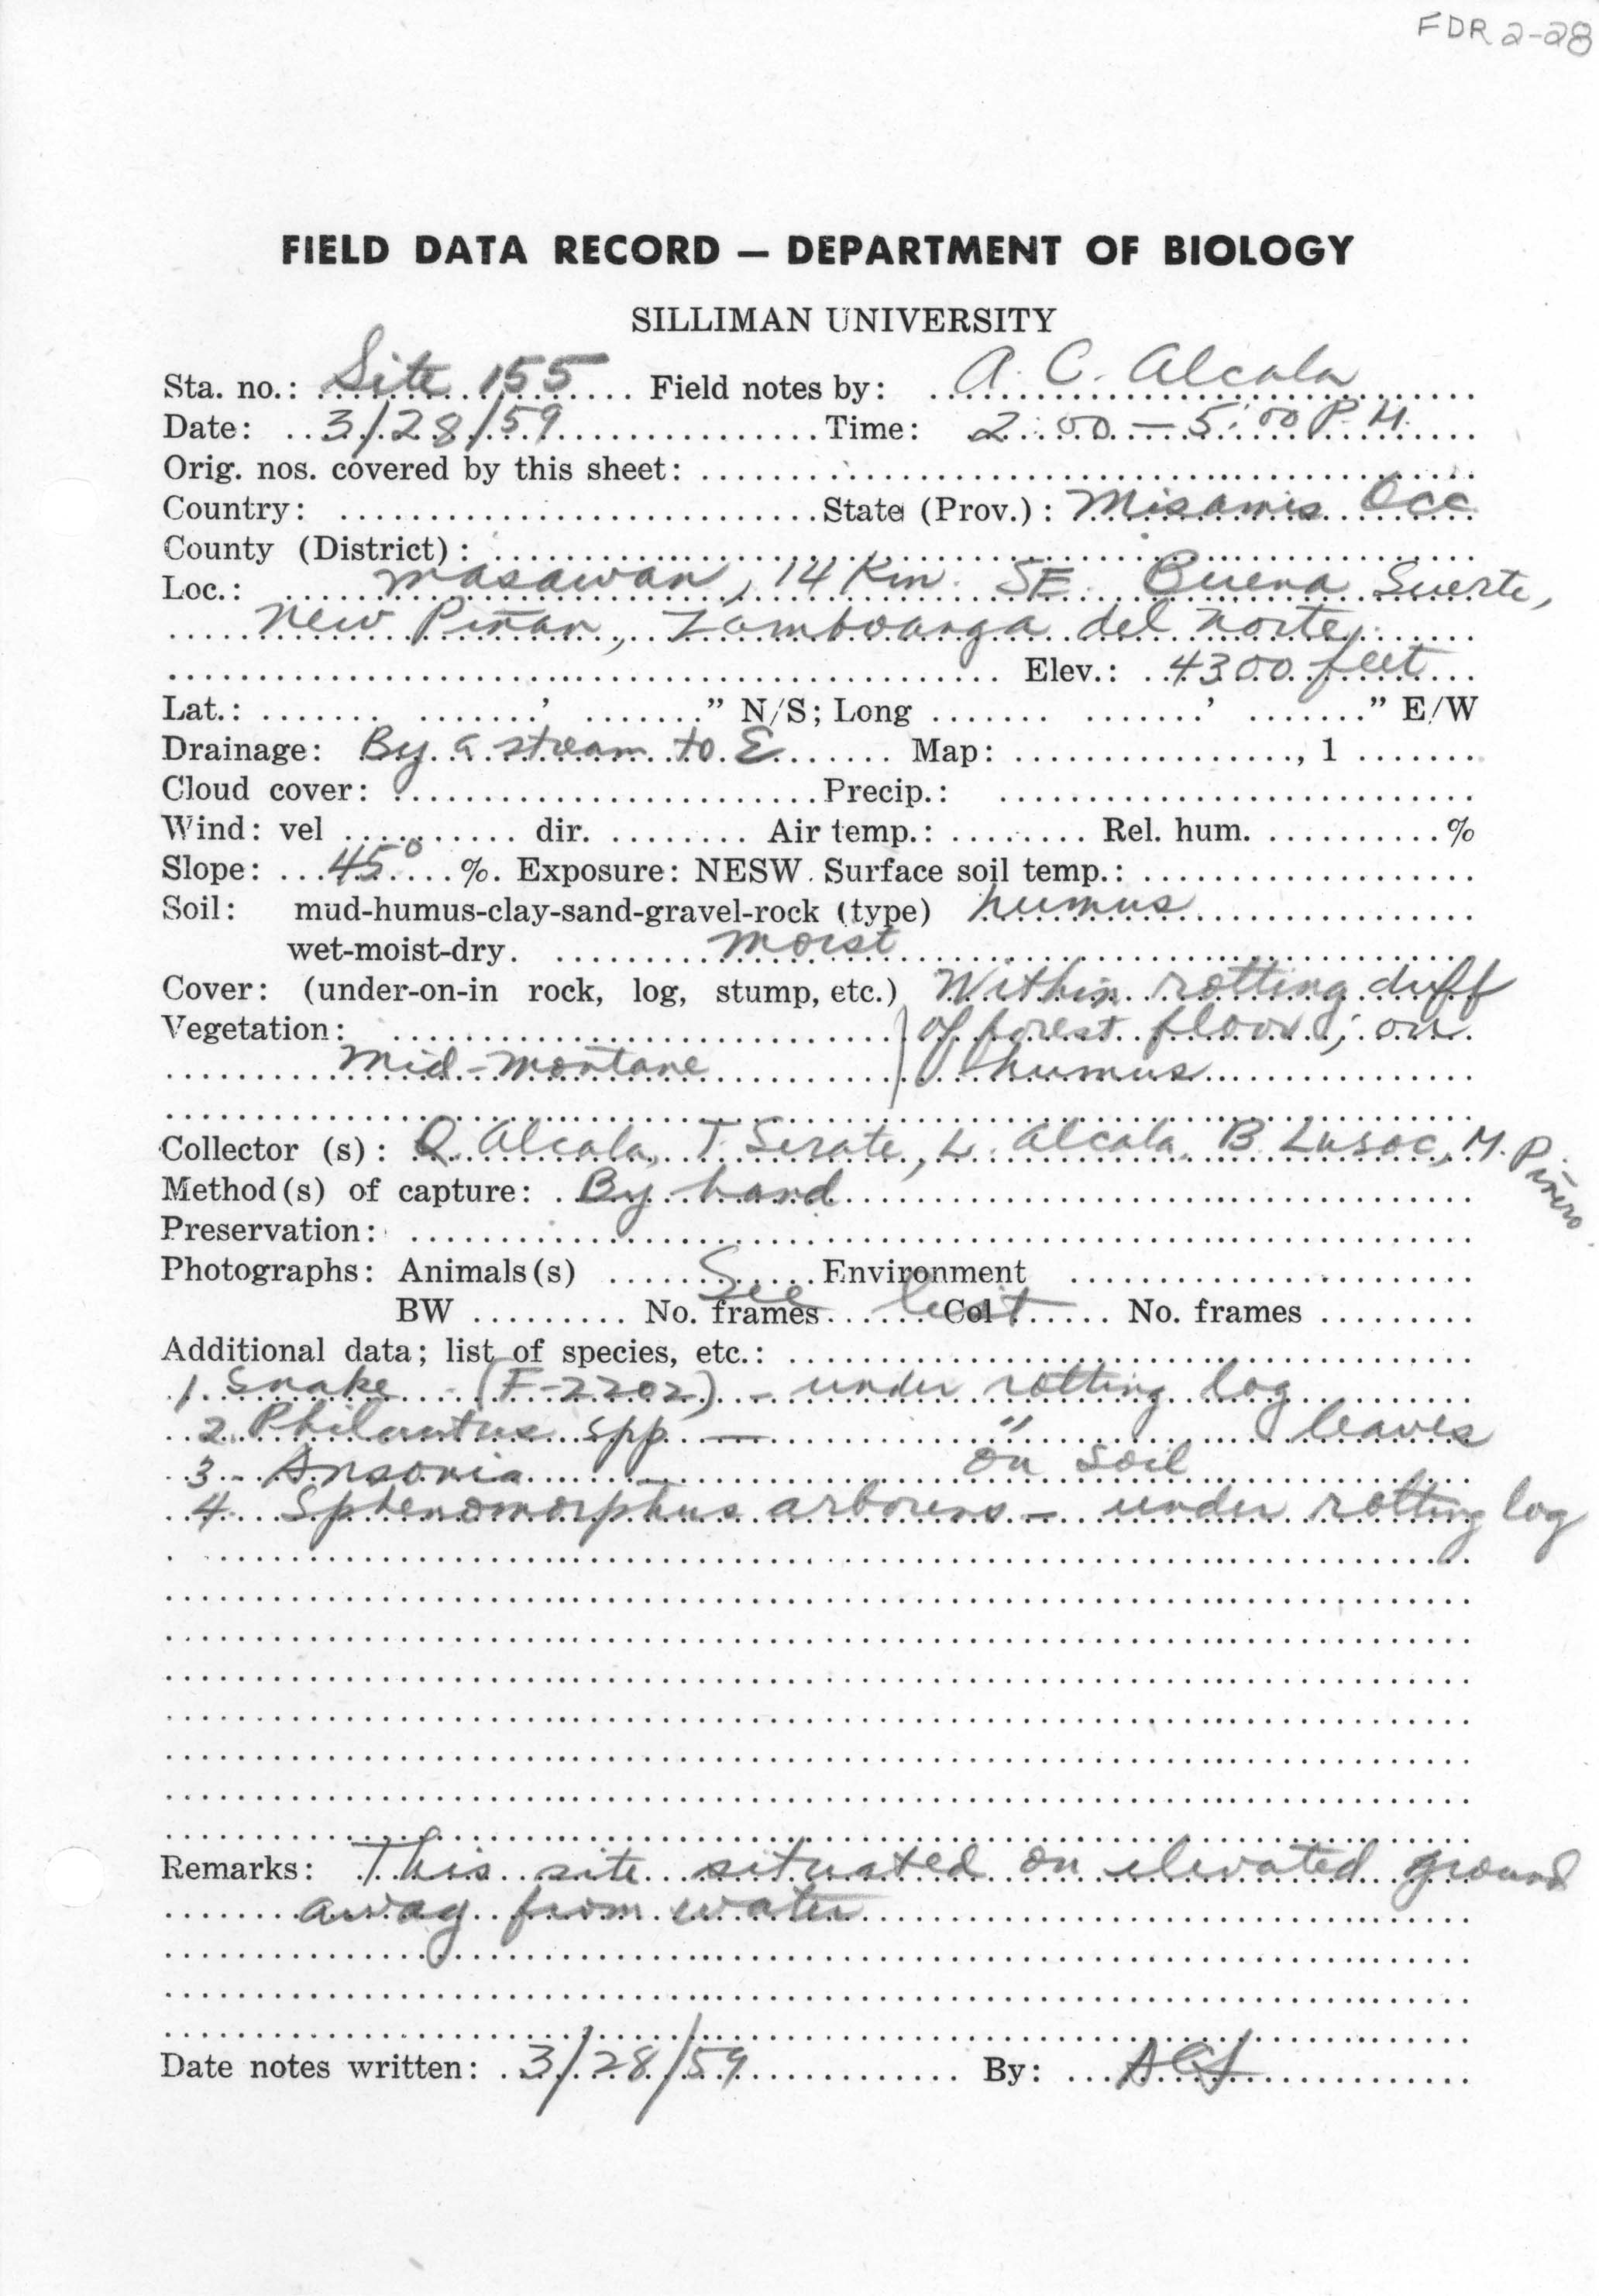 FDR 2-28
FIELD DATA RECORD — DEPARTMENT OF BIOLOGY
SILLIMAN UNIVERSITY
Sta. no.: Site 155 Field notes by: A. C. Alcala
Date: 3/28/59 Time: 2:00 — 5:00 P.M.
Orig. nos. covered by this sheet:
Country: State (Prov.): Misamis Occ
County (District):
Loc.: Masawan, 14 Km. SE Buena Suerte,
New Piñan, Zamboanga del Norte,
Elev.: 4300 feet
Lat.: ' " N/S; Long ' " E/W
Drainage: By a stream to E Map: , 1
Cloud cover: Precip.:
Wind: vel dir. Air temp.: Rel. hum. %
Slope: 45° %. Exposure: NESW. Surface soil temp.:
Soil: mud-humus-clay-sand-gravel-rock (type) humus
wet-moist-dry. moist
Cover: (under-on-in rock, log, stump, etc.) Within rotting duff
Vegetation: of forest floor; on
mid-montane humus
Collector (s): Q. Alcala, T. Serate, L. Alcala, B. Lusoc, M. Piñero
Method(s) of capture: By hand
Preservation:
Photographs: Animals(s) See Environment
BW No. frames list Col No. frames
Additional data; list of species, etc.:
1. Snake - (F-2202) - under rotting log
2. Philautus spp — " leaves
3. Ansonia — on soil
4. Sphenomorphus arborens - under rotting log
Remarks: This site situated on elevated ground
away from water
Date notes written: 3/28/59 By: ACA